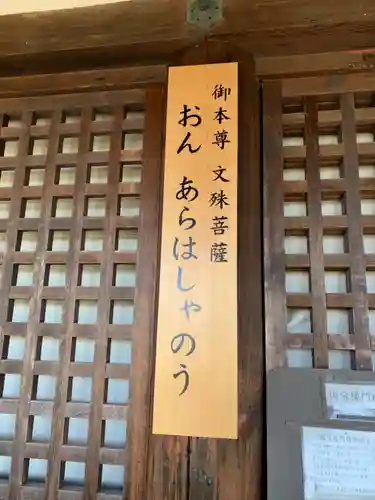 御本尊 文殊菩薩
おん あらはしゃのう